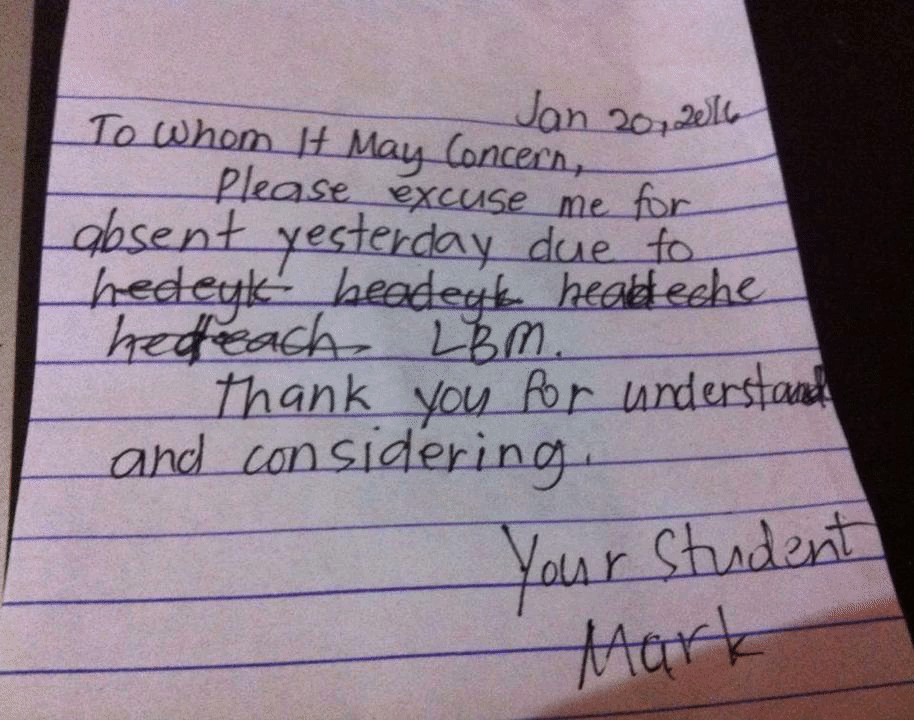 Jan 20, 2016
To Whom It May Concern,
Please excuse me for
absent yesterday due to
hedeyk headeyk headeche
hedeach LBM.
Thank you for understand
and considering.
Your Student
Mark